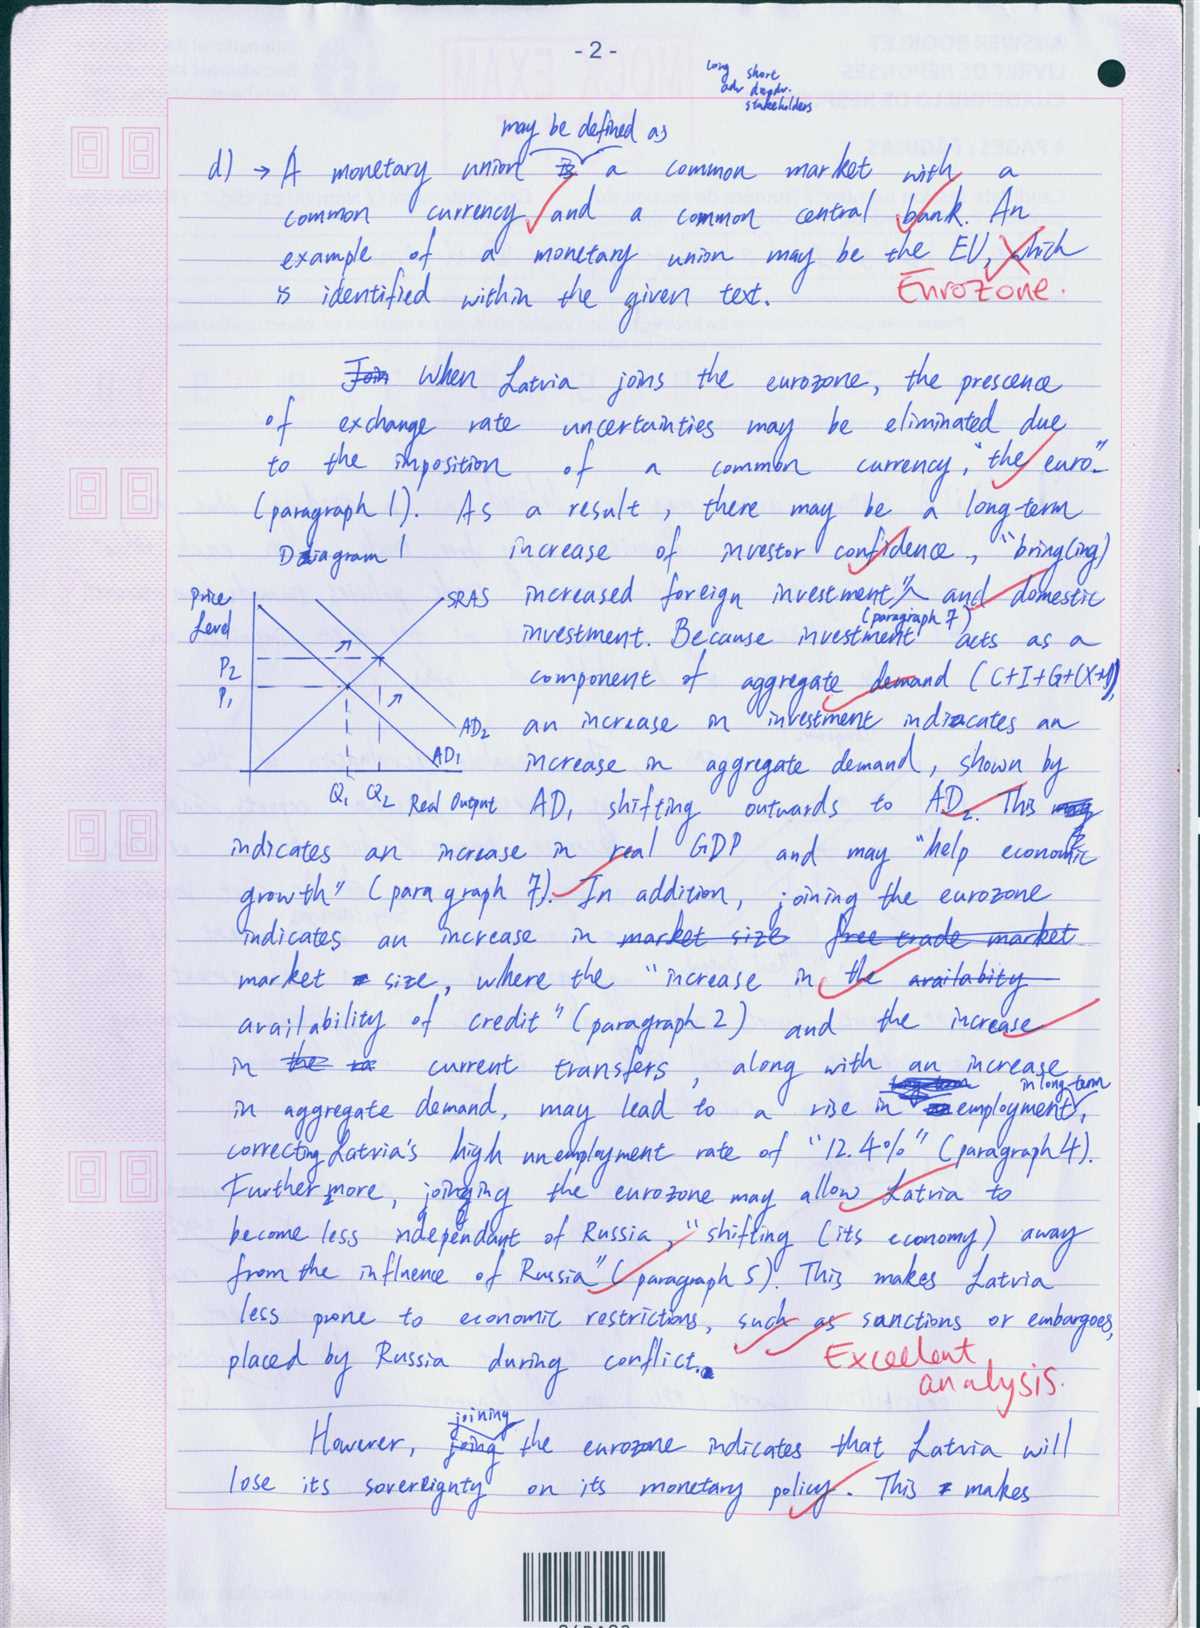 - 2 -
long short
adv disadv.
stakeholders
may be defined as
d) → A monetary union is a common market with a
common currency and a common central bank. An
example of a monetary union may be the EU, which
is identified within the given text.
Eurozone.
Join When Latvia joins the eurozone, the prescence
of exchange rate uncertainties may be eliminated due
to the imposition of a common currency, "the euro"
(paragraph 1). As a result, there may be a long-term
Diagram 1
increase of investor confidence, "bring(ing)
increased foreign investment" and domestic
(paragraph 7)
investment. Because investment acts as a
component of aggregate demand (C+I+G+(X+M),
an increase in investment indicates an
increase in aggregate demand, shown by
Price
Level
P2
P1
SRAS
AD2
AD1
Q1 Q2 Real Output
AD1 shifting outwards to AD2. This
indicates an increase in real GDP and may "help economic
growth" (paragraph 7). In addition, joining the eurozone
indicates an increase in market size free trade market
market size, where the "increase in the availabity
availability of credit" (paragraph 2) and the increase
in the current transfers, along with an increase
in long term
in aggregate demand, may lead to a rise in employment,
correcting Latvia's high unemployment rate of "12.4%" (paragraph 4).
Furthermore, joinging the eurozone may allow Latvia to
become less ndependant of Russia, "shifting (its economy) away
from the influence of Russia" (paragraph 5). This makes Latvia
less prone to economic restrictions, such as sanctions or embargoes,
placed by Russia during conflict.
Excellent
analysis.
joining
However, joing the eurozone indicates that Latvia will
lose its sovereignty on its monetary policy. This makes